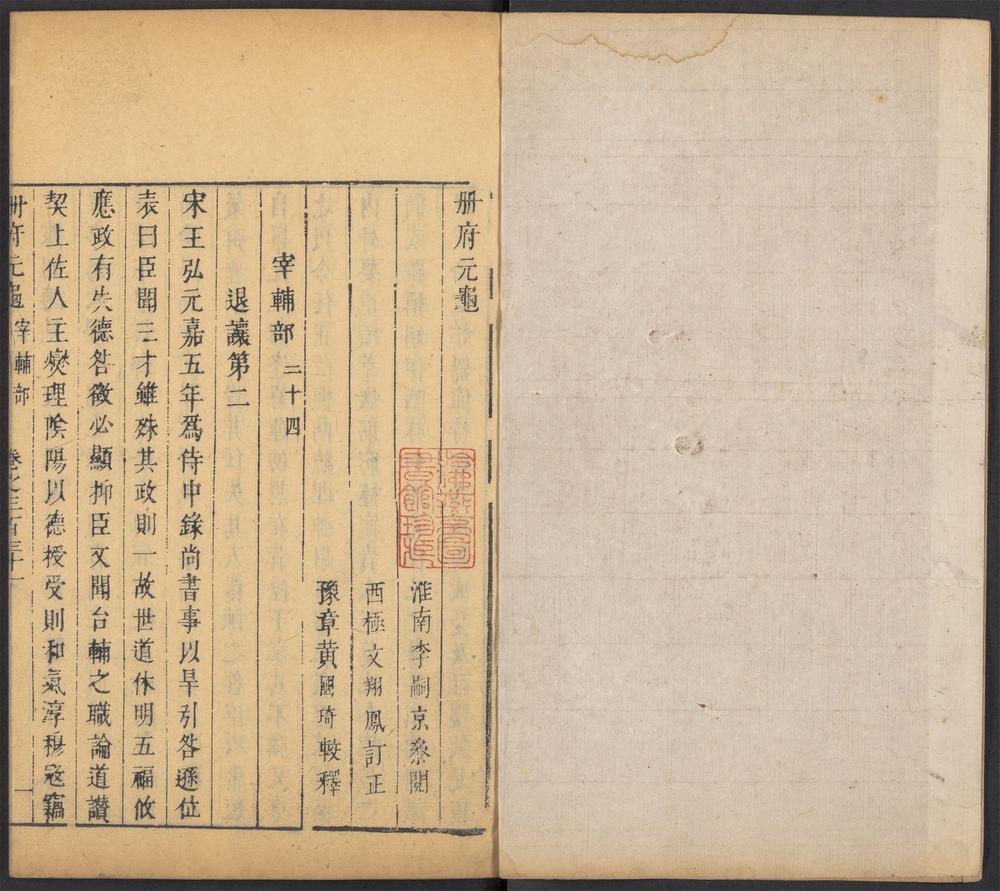 册府元龜
淮南李嗣京叅閱
西極文翔鳳訂正
豫章黃國琦較釋
宰輔部 二十四
退讓第二
宋王弘元嘉五年爲侍中錄尚書事以旱引咎遜位
表曰臣聞三才雖殊其政則一故世道休明五福攸
應政有失德咎徵必顯抑臣又聞台輔之職論道讚
契上佐人主燮理陰陽以德授受則和氣淳穆寇竊
册府元龜 宰輔部 卷之三百三十 一
哈佛燕京圖
書館珍藏